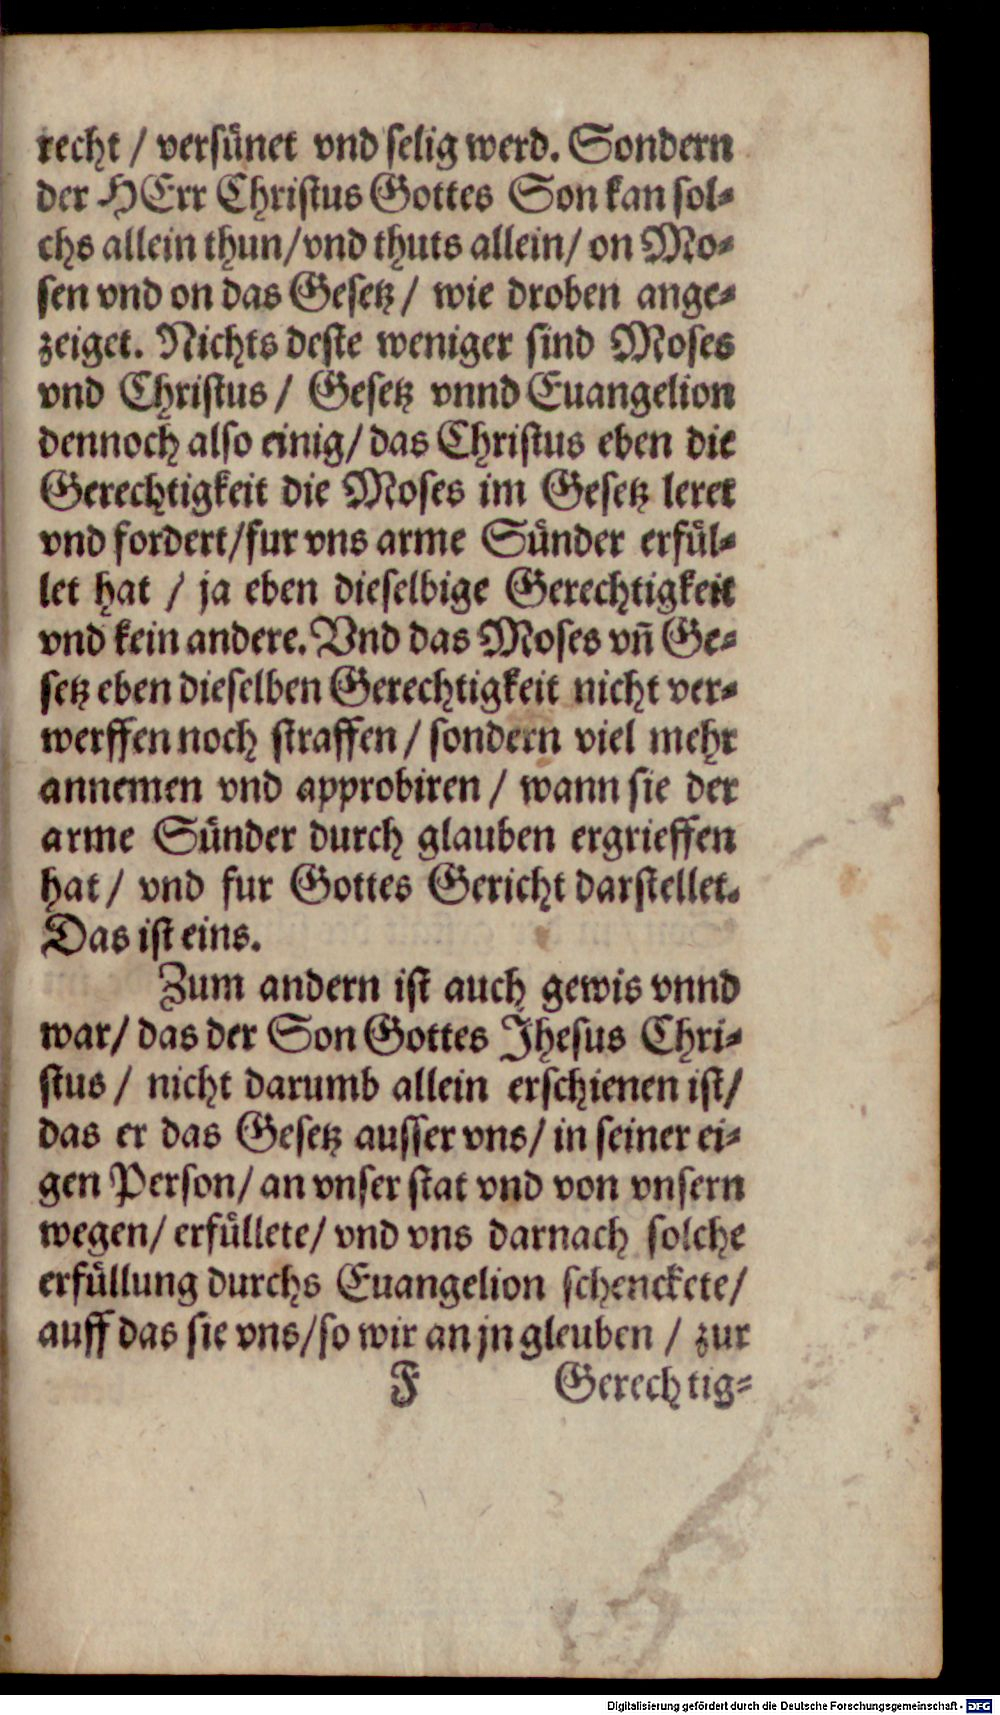 recht / versünet vnd selig werd. Sondern
der HErr Christus Gottes Son kan sol⸗
chs allein thun/vnd thuts allein/ on Mo⸗
sen vnd on das Gesetz / wie droben ange⸗
zeiget. Nichts deste weniger sind Moses
vnd Christus / Gesetz vnnd Euangelion
dennoch also einig/ das Christus eben die
Gerechtigkeit die Moses im Gesetz leret
vnd fordert/fur vns arme Sünder erfül⸗
let hat / ja eben dieselbige Gerechtigkeit
vnd kein andere. Vnd das Moses vn̄ Ge⸗
setz eben dieselben Gerechtigkeit nicht ver⸗
werffen noch straffen / sondern viel mehr
annemen vnd approbiren / wann sie der
arme Sünder durch glauben ergrieffen
hat / vnd fur Gottes Gericht darstellet.
Das ist eins.
Zum andern ist auch gewis vnnd
war/ das der Son Gottes Jhesus Chri⸗
stus / nicht darumb allein erschienen ist/
das er das Gesetz ausser vns/ in seiner ei⸗
gen Person/ an vnser stat vnd von vnsern
wegen/ erfüllete/ vnd vns darnach solche
erfüllung durchs Euangelion schenckete/
auff das sie vns/so wir an jn gleuben / zur
F Gerechtig⸗
Digitalisierung gefördert durch die Deutsche Forschungsgemeinschaft - DFG